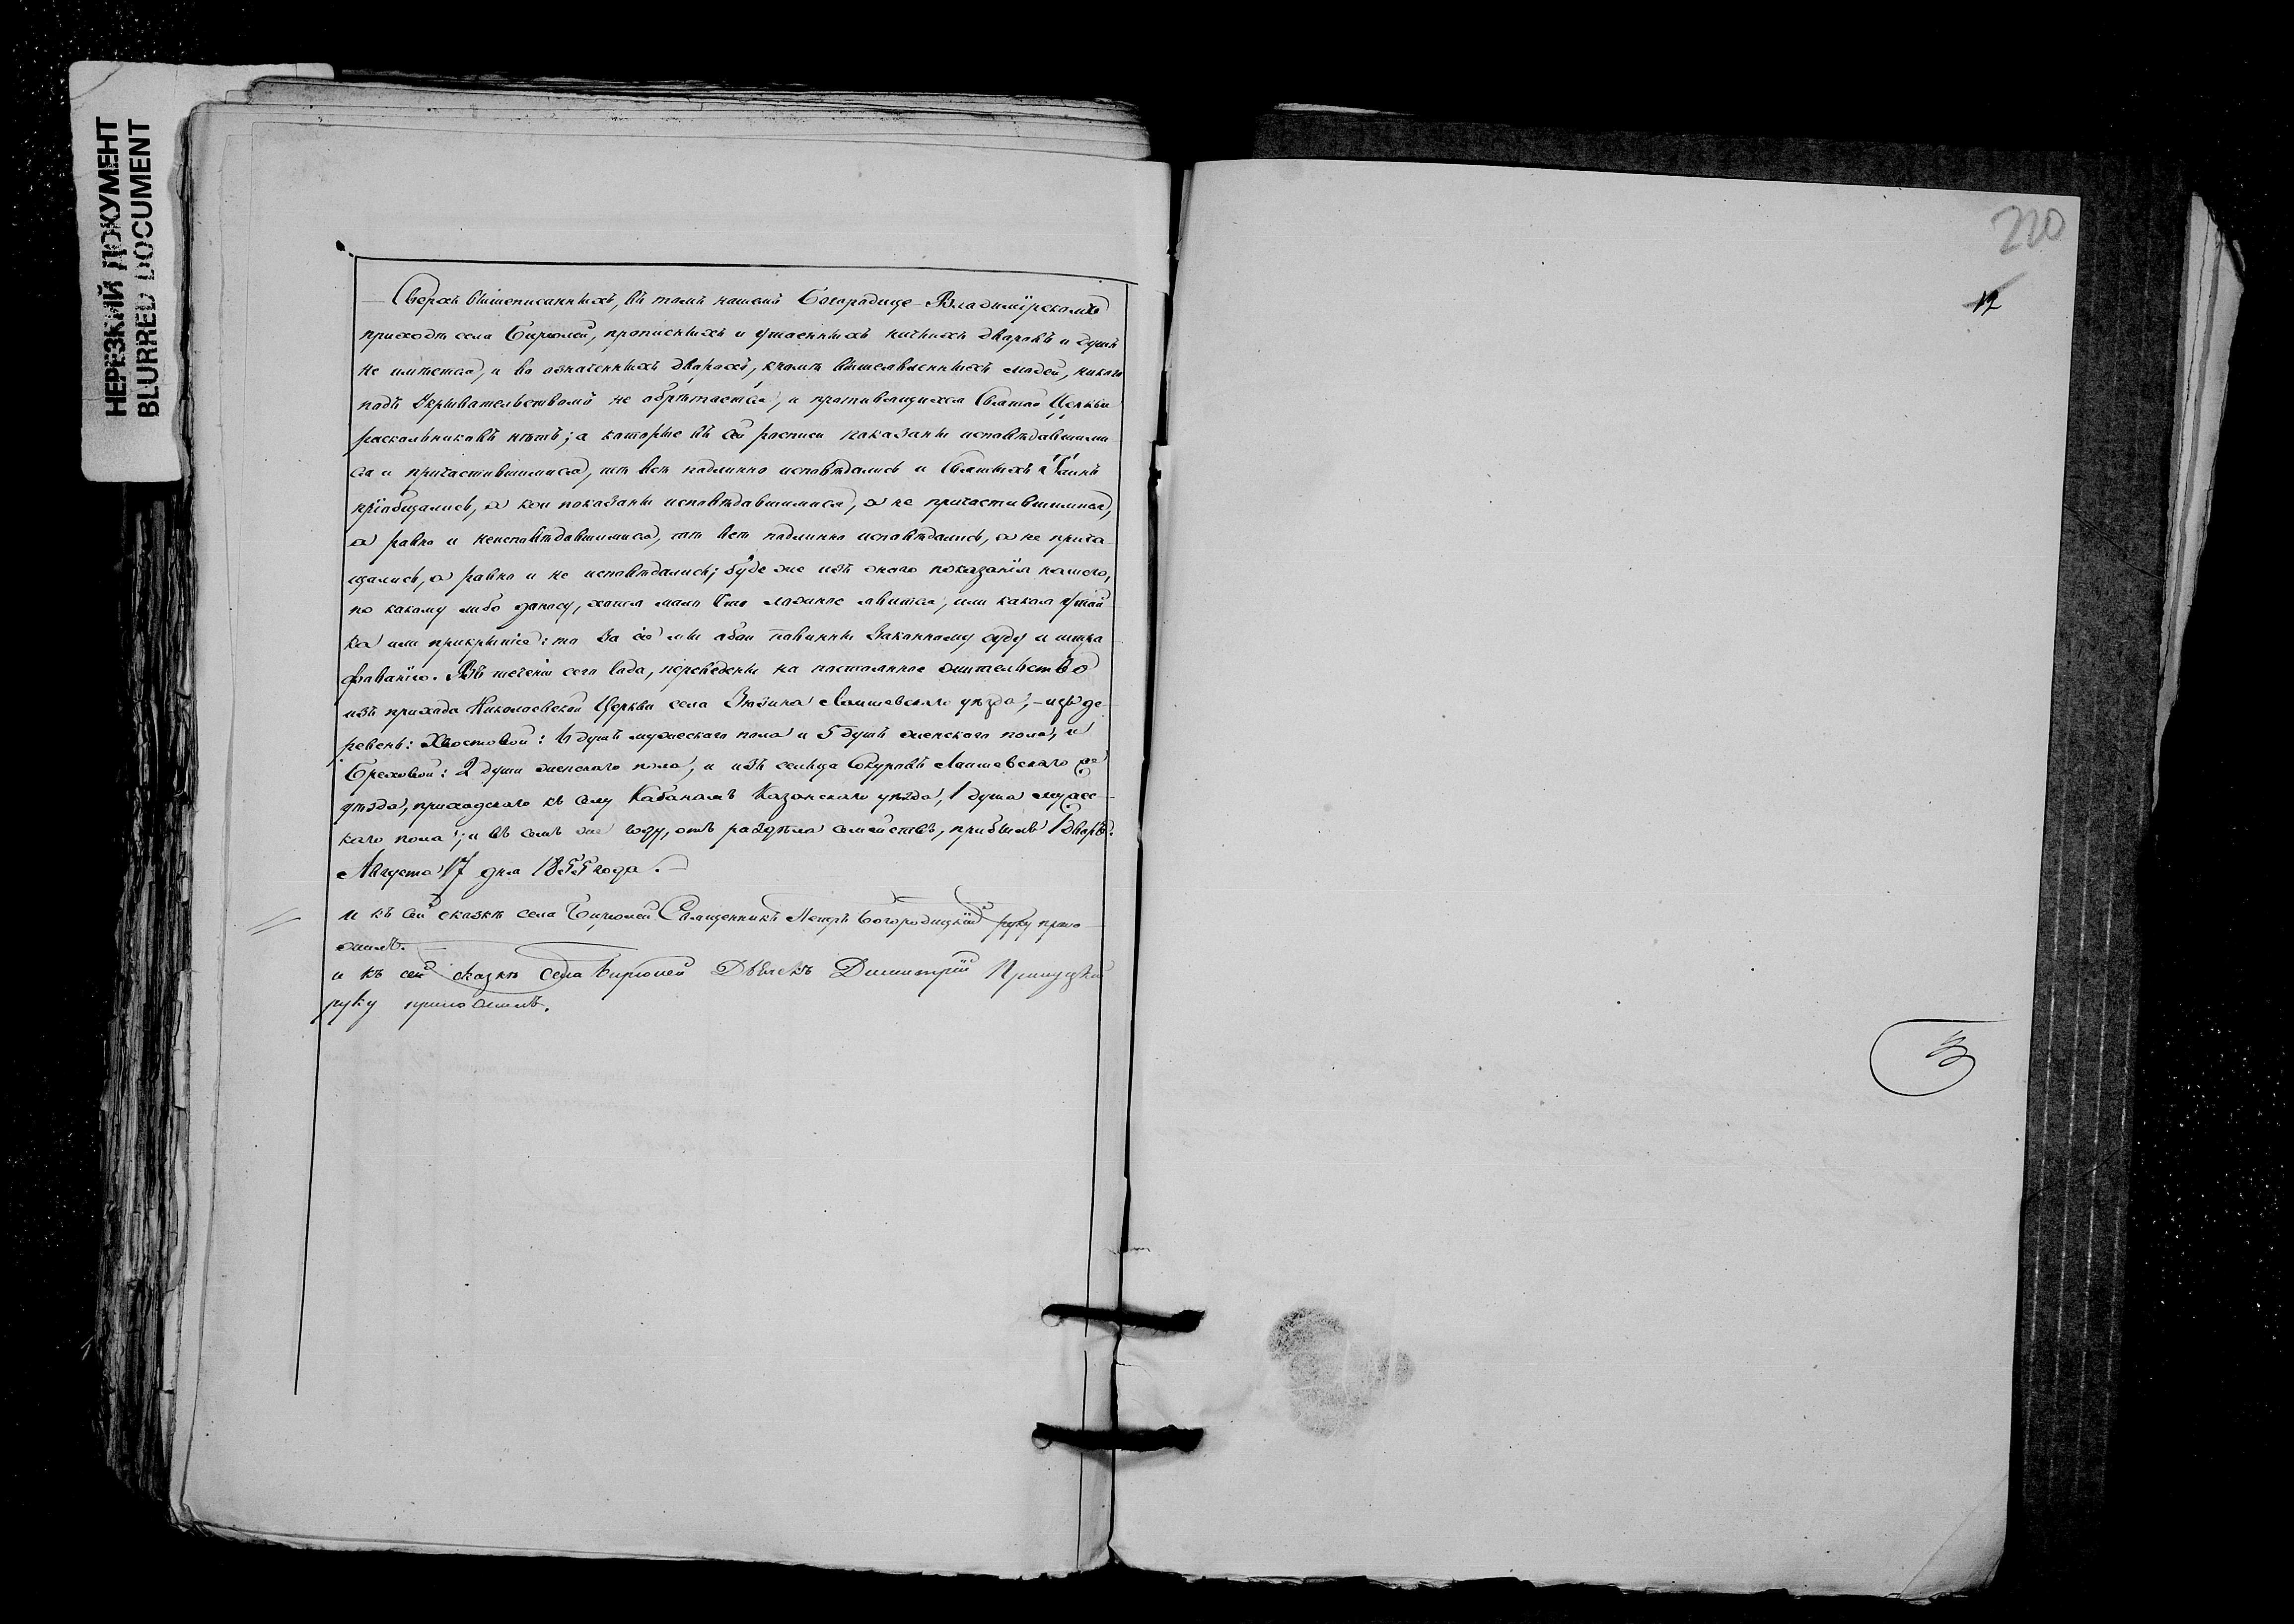 НЕРЕЗКИЙ ДОКУМЕНТ
BLURRED DOCUMENT
Сверхъ вышеписанныхъ, въ томъ нашемъ Богородице-Владимірскомъ
приходѣ села Бирюлей, прописныхъ и утаенныхъ ничьихъ дворовъ и душъ
не имѣется, и во означенныхъ дворахъ, кромѣ вышеявленныхъ людей, никого
подъ укрывательствомъ не обрѣтается, и противящихся Святой Церкви
раскольниковъ нѣтъ; а которые въ сей росписи показаны исповѣдавшими
ся и причастившимися, тѣ всѣ подлинно исповѣдались и Святыхъ Таинъ
пріобщались, а кои показаны исповѣдавшимися, а не причастившимися,
а равно и неисповѣдавшимися, тѣ всѣ подлинно исповѣдались, а не прича
щались, а равно и не исповѣдались; буде же изъ онаго показанія нашего,
по какому либо доносу, хотя мало что ложное явится, или какая утай
ка или прикрытіе: то за сіе мы обои повинны законному суду и штра
фованію. Въ теченіи сего года, переведены на постоянное жительство
изъ прихода Николаевской Церкви села Зюзина Лаишевскаго уѣзда, – изъ де
ревень: Хвостовой: 6 душъ мужескаго пола и 5 душъ женскаго пола, и
Ореховой: 2 души женскаго пола, и изъ сельца Сокуровъ Лаишевскаго же
уѣзда, приходскаго къ селу Кабанамъ Казанскаго уѣзда, 1 душа мужес
каго пола; и въ семъ же году, отъ раздѣла семействъ, прибылъ 1 дворъ.
Августа 17 дня 1855 года.
и къ сей сказкѣ села Бирюлей Священникъ Петръ Богородицкій руку прило
жилъ.
и къ сей сказкѣ села Бирюлей Дьячекъ Димитрій руку приложилъ.
220
12